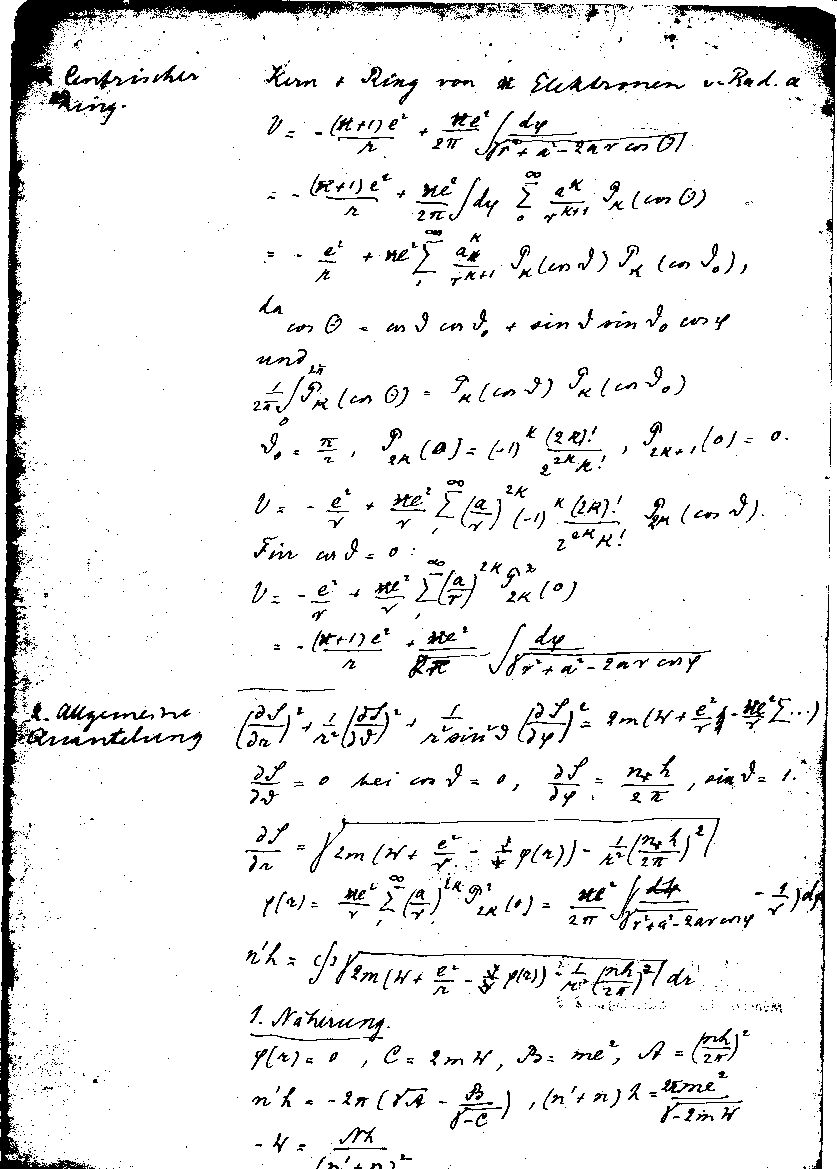 Centrischer Kern + Ring von n Elektronen v. Rad. a
Ring.
V = - (n+1)e²/r + ne²/2π ∫ dφ/√(r²+a²-2ar cos Θ)
= - (n+1)e²/r + ne²/2π ∫dφ ∑₀^∞ a^k/r^(k+1) P_k(cos Θ)
= - e²/r + ne² ∑₁^∞ a^k/r^(k+1) P_k(cos ϑ) P_k(cos ϑ₀),
da
cos Θ = cos ϑ cos ϑ₀ + sin ϑ sin ϑ₀ cos φ
und
1/2π ∫₀^2π P_k(cos Θ) = P_k(cos ϑ) P_k(cos ϑ₀)
ϑ₀ = π/2, P_2k(0) = (-1)^k (2k)!/2^2k k!, P_2k+1(0) = 0.
V = - e²/r + ne²/r ∑₁^∞ (a/r)^2k (-1)^k (2k)!/2^2k k! P_2k(cos ϑ).
Für cos ϑ = 0:
V = - e²/r + ne²/r ∑₁^∞ (a/r)^2k P²_2k(0)
= - (n+1)e²/r + ne²/2π ∫ dφ/√(r²+a²-2ar cos φ)
2. Allgemeine Quantelung
(∂S/∂r)² + 1/r² (∂S/∂ϑ)² + 1/r² sin²ϑ (∂S/∂φ)² = 2m(W + e²/r - ne²/r ∑...)
∂S/∂ϑ = 0 bei cos ϑ = 0, ∂S/∂φ = nh/2π, sin ϑ = 1.
∂S/∂r = √(2m(W + e²/r - φ(r)) - 1/r² (nh/2π)²)
φ(r) = ne²/r ∑₁^∞ (a/r)^2k P²_2k(0) = ne²/2π ∫(1/√(r²+a²-2ar cos φ) - 1/r) dφ
n'h = ∮√(2m(W + e²/r - φ(r)) - 1/r² (nh/2π)²) dr
1. Näherung.
φ(r) = 0, C = 2mW, B = me², A = (nh/2π)²
n'h = -2π(√A - B/√-C), (n'+n)h = 2πme²/√-2mW
-W = Nh/(n'+n)²